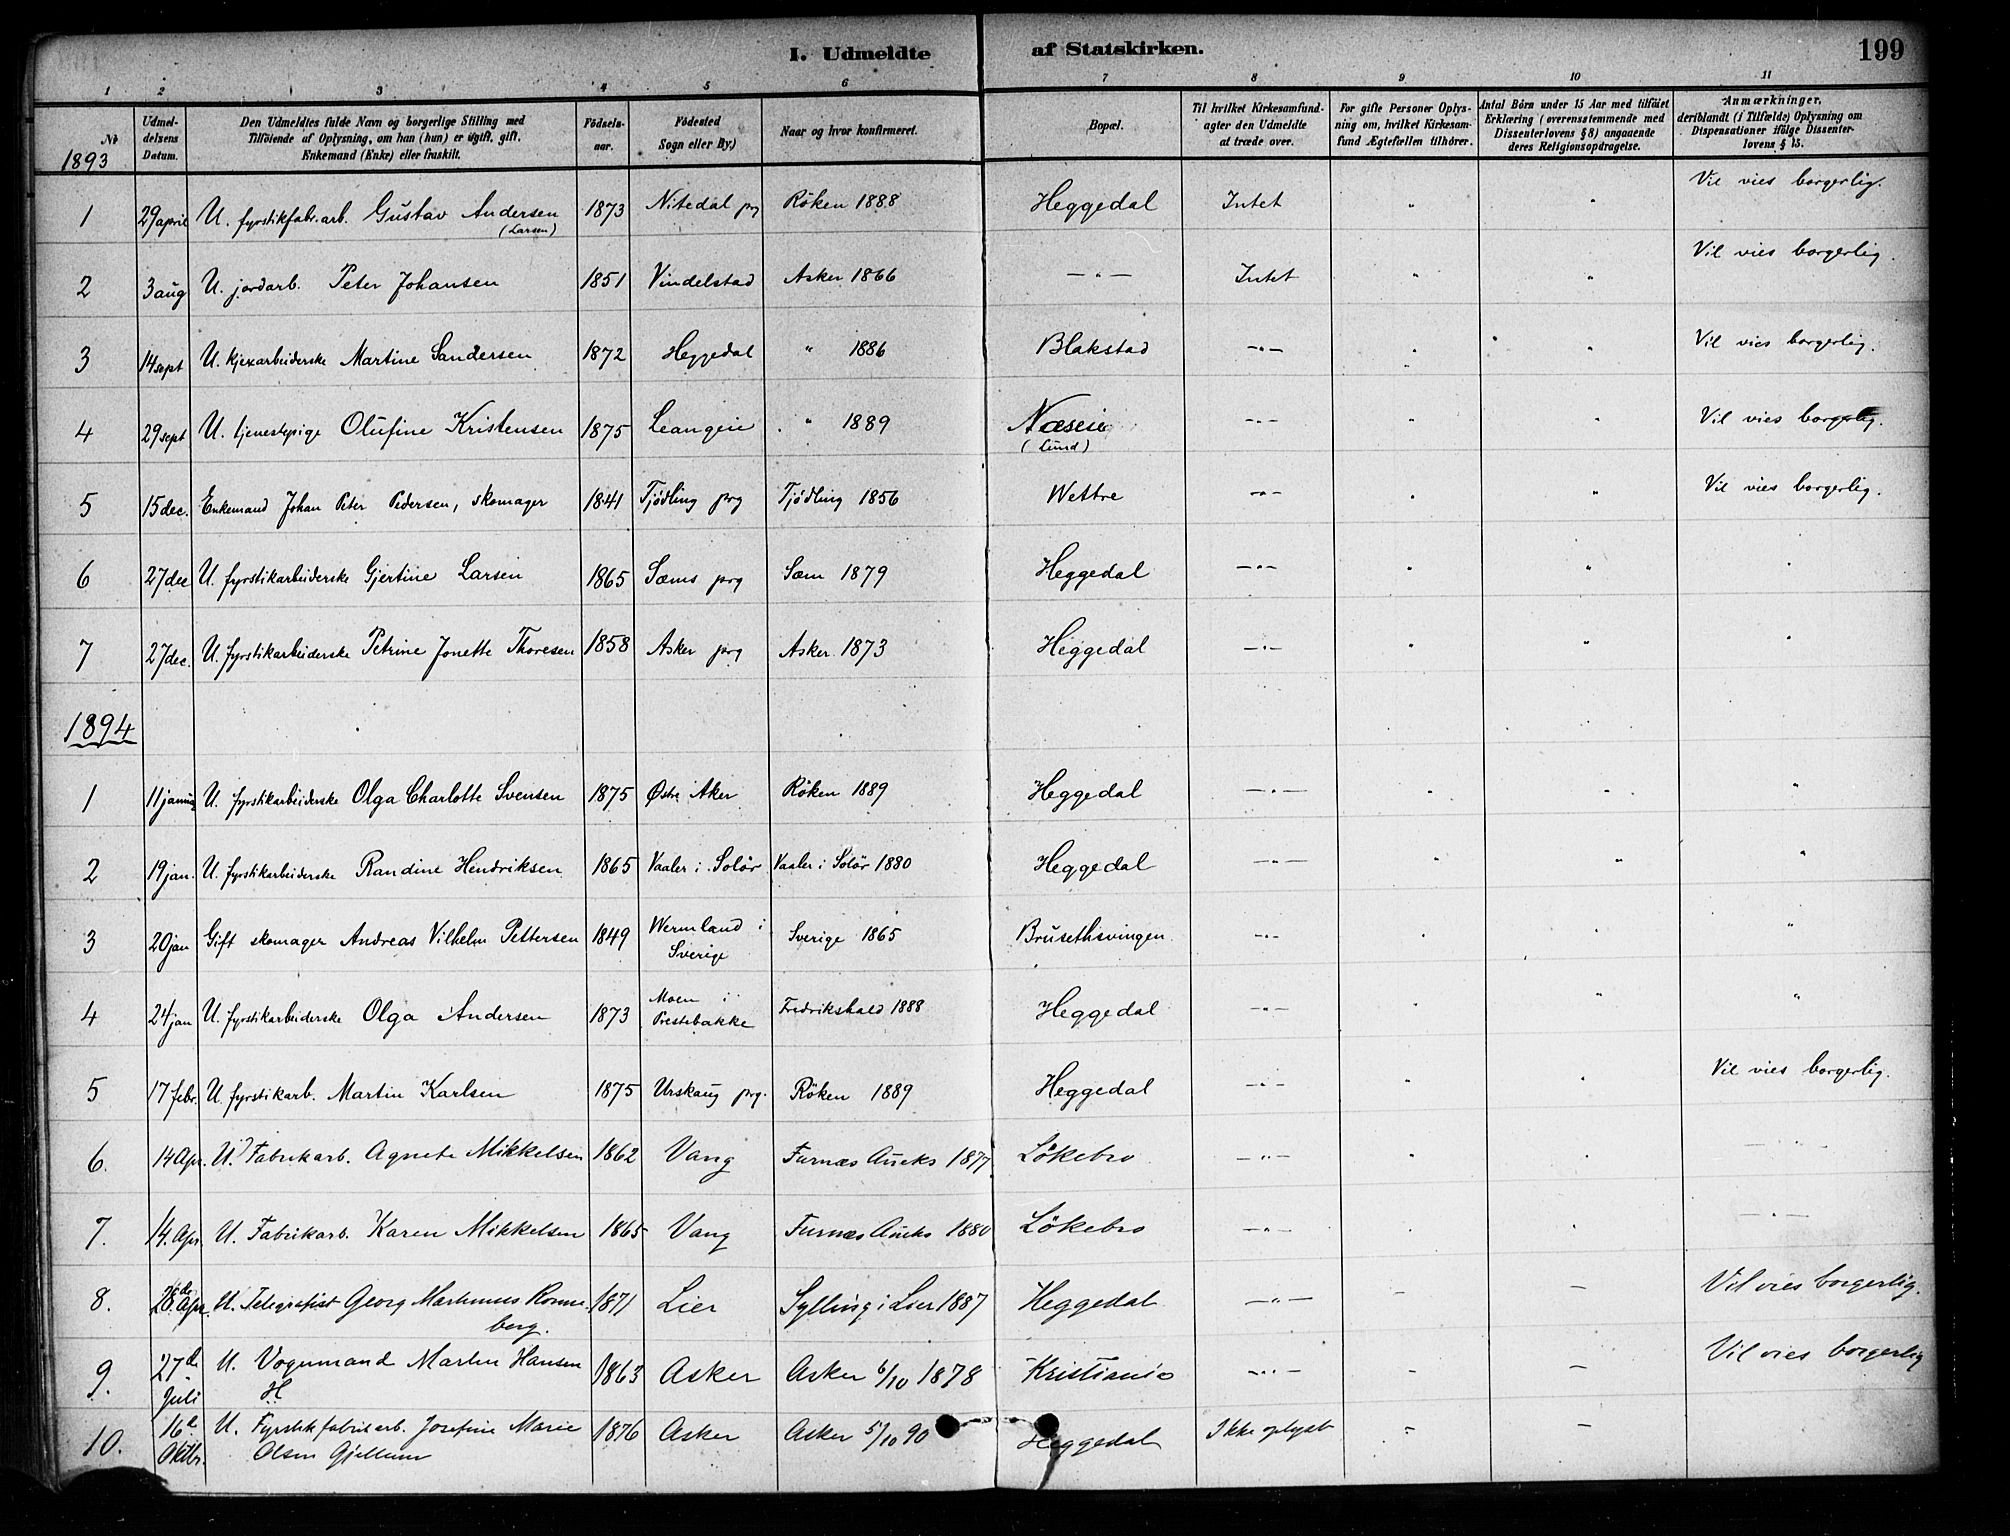 I. Udmeldte af Statskirken. 199
1 2 3 4 5 6 7 8 9 10 11
№ Udmeldelsens Datum. Den Udmeldtes fulde Navn og borgerlige Stilling med Tilföiende af Oplysning, om han (hun) er ugift, gift, Enkemand (Enke) eller fraskilt. Födselsaar. Födested Sogn eller By.) Naar og hvor konfirmeret. Bopæl. Til hvilket Kirkesamfund agter den Udmeldte at træde over. For gifte Personer Oplysning om, hvilket Kirkesamfund Ægtefællen tilhörer. Antal Börn under 15 Aar med tilföiet Erklæring (overensstemmende med Dissenterlovens § 8) angaaende deres Religionsopdragelse. Anmærkninger, deriblandt (i Tilfælde) Oplysning om Dispensationer ifölge Dissenterlovens § 15.
1893
1 29 april U. fyrstikfabr.arb. Gustav Andersen (Larsen) 1873 Nitedal prg Röken 1888 Heggedal Intet " " Vil vies borgerlig.
2 3 aug U. jordarb. Peter Johansen 1851 Vindelstad Asker 1866 —"— Intet " " Vil vies borgerlig.
3 14 sept U. kjexarbeiderske Martine Sandersen 1872 Heggedal " 1886 Blakstad —"— " " Vil vies borgerlig.
4 29 sept U. tjenestepige Olufine Kristensen 1875 Leangeie " 1889 Næseie (Lund) —"— " " Vil vies borgerlig.
5 15 dec. Enkemand Johan Peter Pedersen, skomager 1841 Tjödling prg Tjödling 1856 Wettre —"— " " Vil vies borgerlig.
6 27 dec U. fyrstikarbeiderske Gjertine Larsen 1865 Sæms prg Sæm 1879 Heggedal —"— " " "
7 27 dec. U. fyrstikarbeiderske Petrine Jonette Thoresen 1858 Asker prg Asker 1873 Heggedal —"— " " "
1894
1 11 januar U. fyrstikarbeiderske Olga Charlotte Svensen 1875 Østre Aker Röken 1889 Heggedal —"— " " "
2 19 jan. U. fyrstikarbeiderske Randine Hendriksen 1865 Vaaler i Solör Vaaler i Solör 1880 Heggedal —"— " " "
3 20 jan Gift skomager Andreas Vilhelm Pettersen 1849 Wermland i Sverige Sverige 1865 Brusethsvingen —"— " " "
4 24 jan U. fyrstikarbeiderske Olga Andersen 1873 Moen i Prestebakke Fredrikshald 1888 Heggedal —"— " " "
5 17 febr. U. fyrstikarb. Martin Karlsen 1875 Urskaug prg. Röken 1889 Heggedal —"— " " Vil vies borgerlig.
6. 14 Apr. U. Fabrikarb. Agnete Mikkelsen 1862 Vang Furnæs Aneks 1877 Lökebro —"— " " —"—
7. 14. Apr. U. Fabrikarb. Karen Mikkelsen 1865 Vang Furnæs Aneks 1880 Lökebro —"— " " —"—
8. Apr. U. Telegrafist Georg Martinius Ronneberg. 1871 Lier Sylling i Lier 1887 Heggedal —"— – – Vil vies borgerlig.
9. 27de Juli U. Vognmand Martin Hansen H 1863 Asker Asker 6/10 1878 Kristiania —"— – – Vil vies borgerlig
10. 16de Oktbr. U. Fyrstikfabrikarb. Josefine Marie Olsen Gjellum 1876 Asker Asker 5/10 90 Heggedal Ikke oplyst – –